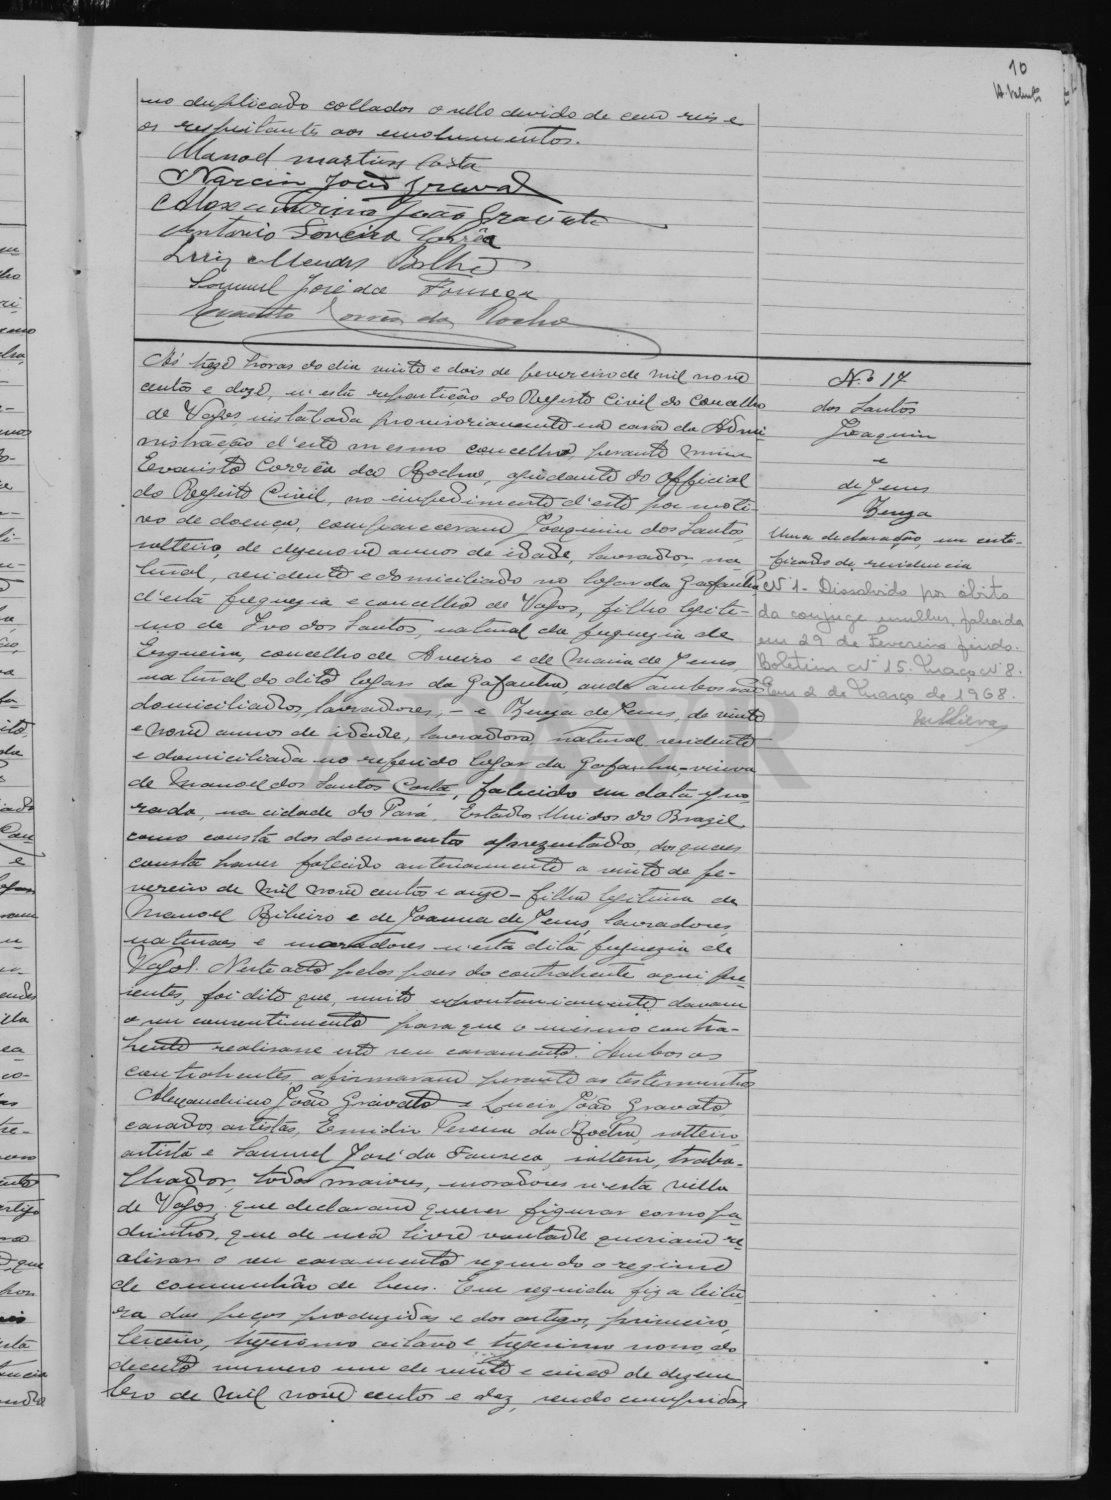 10
no duplicado collados o sello devido de cem reis e
os respeitantes aos emolumentos.
Manoel Martins Costa
Narcizo João Gravat
Alexandrino João Gravato
Antonio Corrêa
Luiz Mendes Bolhão
Samuel José da Fonseca
Evaristo Corrêa da Rocha
Nº 17
dos Santos
Joaquim
e
de Jesus
Uma declaração, um certi-
ficado de residencia
Nº 1 - Dissolvido por obito
da conjuge mulher, falecida
em 29 de Fevereiro findo.
Boletim Nº 15. Maço Nº 8.
Em 2 de Março de 1968.
A's treze horas do dia vinte e dois de fevereiro de mil nove
centos e doze, n'esta repartição do Registo Civil do Concelho
de Vagos, installada provisoriamente na casa da Admi-
nistração d'este mesmo concelho, perante mim
Evaristo Corrêa da Rocha, ajudante do Official
do Registo Civil, no impedimento d'este por moti-
vo de doença, compareceram Joaquim dos Santos,
solteiro, de dezenove annos de idade, lavrador, na-
tural, residente e domiciliado no logar da Gafanha
d'esta freguezia e concelho de Vagos, filho legiti-
mo de Ivo dos Santos, natural da freguezia de
Esgueira, concelho de Aveiro e de Maria de Jesus,
natural do dito logar da Gafanha, onde ambos são
domiciliados, lavradores, - e de Jesus, de vinte
e nove annos de idade, lavradora, natural, residente
e domiciliada no referido logar da Gafanha, viuva
de Manoel dos Santos Costa, falecido em data igno-
rada, na cidade do Pará, Estados Unidos do Brazil,
como consta dos documentos aprezentados, dos quaes
consta haver falecido anteriormente a vinte de fe-
vereiro de mil nove centos e onze - filha legitima de
Manoel Ribeiro e de Joanna de Jesus, lavradores
naturaes e moradores n'esta dita freguezia de
Vagos. Neste acto pelos paes do contrahente aqui pre-
sentes, foi dito que, muito espontaneamente davam
o seu consentimento para que o mesmo contra-
hente realisasse este seu casamento. Ambos os
contrahentes afirmaram perante as testemunhas
Alexandrino João Gravato e João Gravato,
casados, artistas, Emidio Pereira da Rocha, solteiro,
artista e Samuel José da Fonseca, solteiro, traba-
lhador, todos maiores, moradores n'esta villa
de Vagos, que declaram querer figurar como pa-
drinhos, que de sua livre vontade queriam re-
alisar o seu casamento segundo o regimen
de communhão de bens. Em seguida fiz a leitu-
ra das peças produzidas e dos artigos, primeiro,
terceiro, trigesimo oitavo e trigesimo nono, do
decreto numero um de vinte e cinco de dezem-
bro de mil nove centos e dez, sendo cumpridas